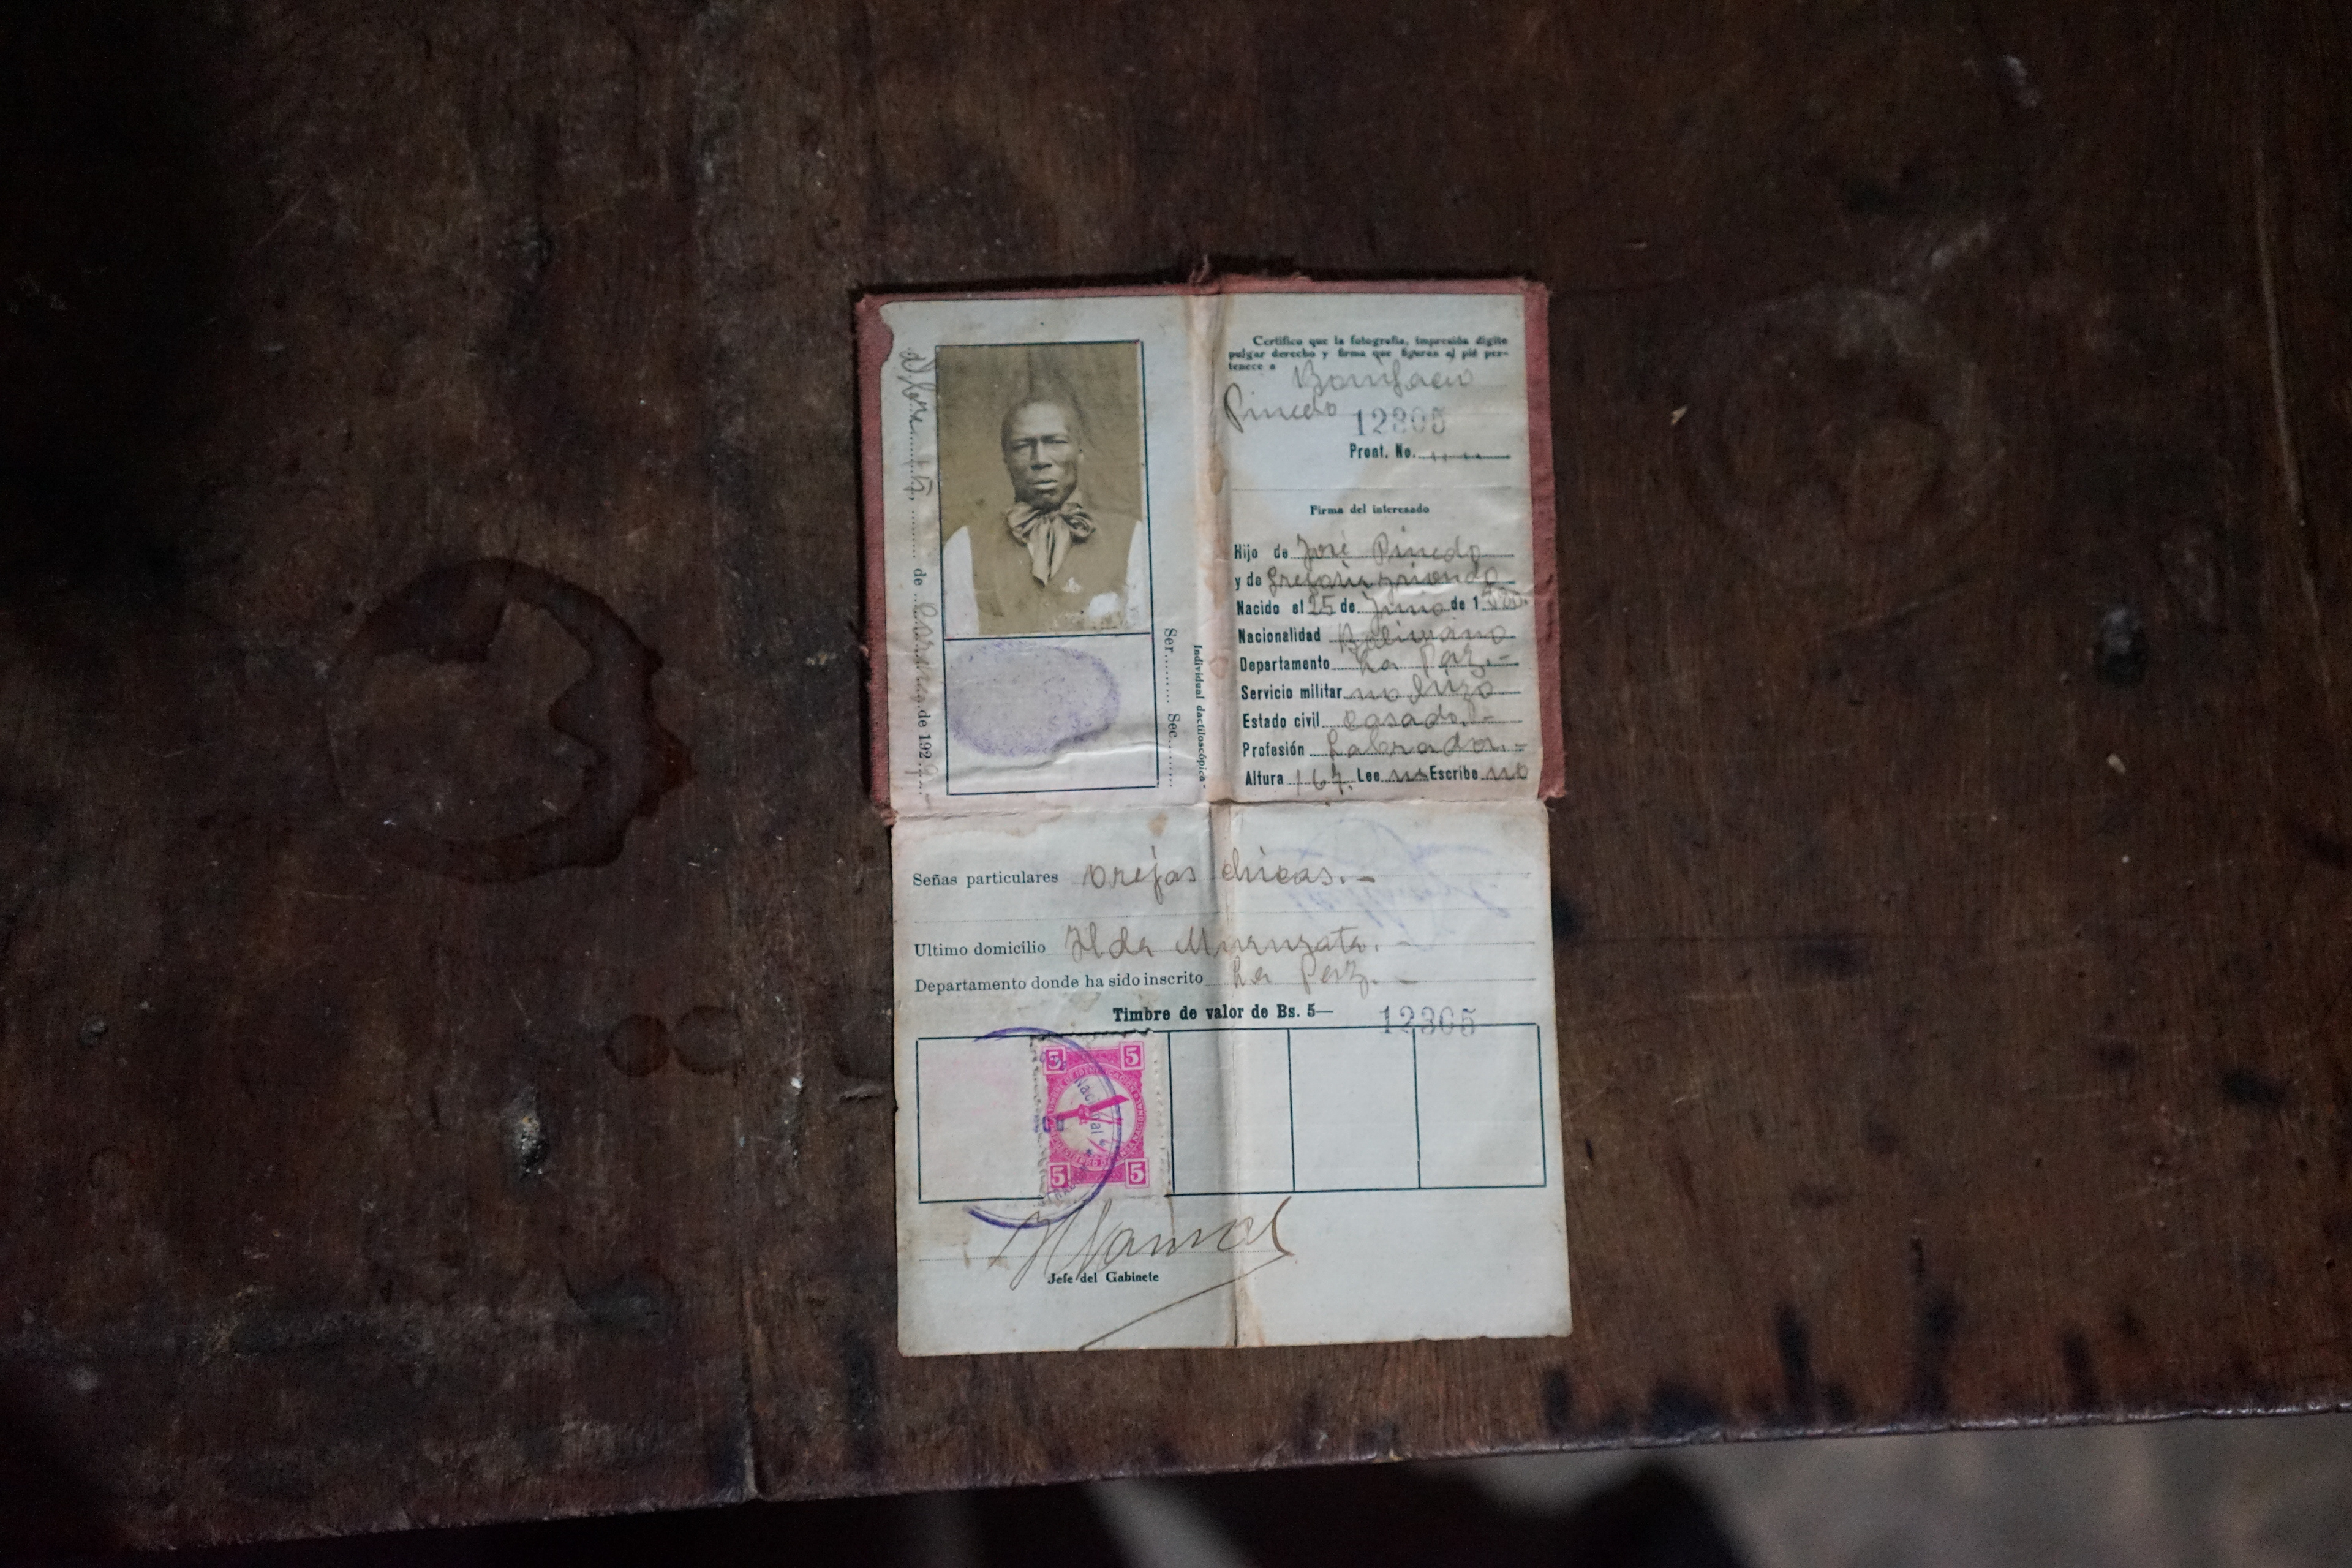 Certifico que la fotografía, impresión dígito
pulgar derecho y firma que figuran al pié per-
tenece a Bonifacio
Pinedo 12305
Pront. No.
Firma del interesado
Hijo de José Pinedo
y de Gregoria
Nacido el 25 de Junio de 1
Nacionalidad Boliviano
Departamento La Paz.-
Servicio militar no hizo
Estado civil casado.-
Profesión Labrador.-
Altura 167. Lee no Escribe no
de de 1929.-
Ser. Sec.
Individual dactiloscópica
Señas particulares orejas chicas.-
Ultimo domicilio Hda Mururata.-
Departamento donde ha sido inscrito La Paz.-
Timbre de valor de Bs. 5— 12305
5 5
Nacional
5 5
Jefe del Gabinete